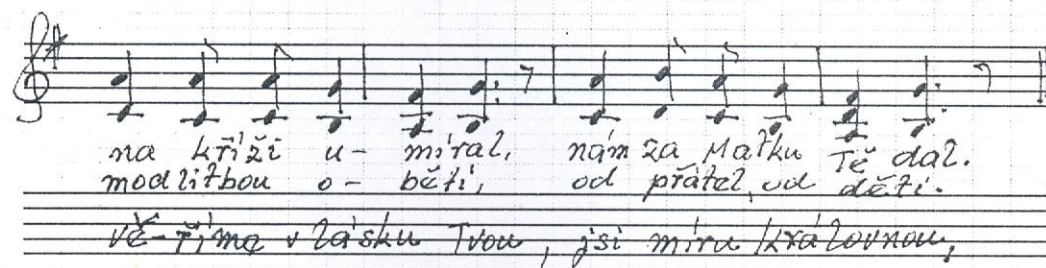 na kříži u- míral, nám za Matku Tě dal.
modlitbou o- běti, od přátel, od dětí.
vě-říme v lásku Tvou, jsi míru královnou,